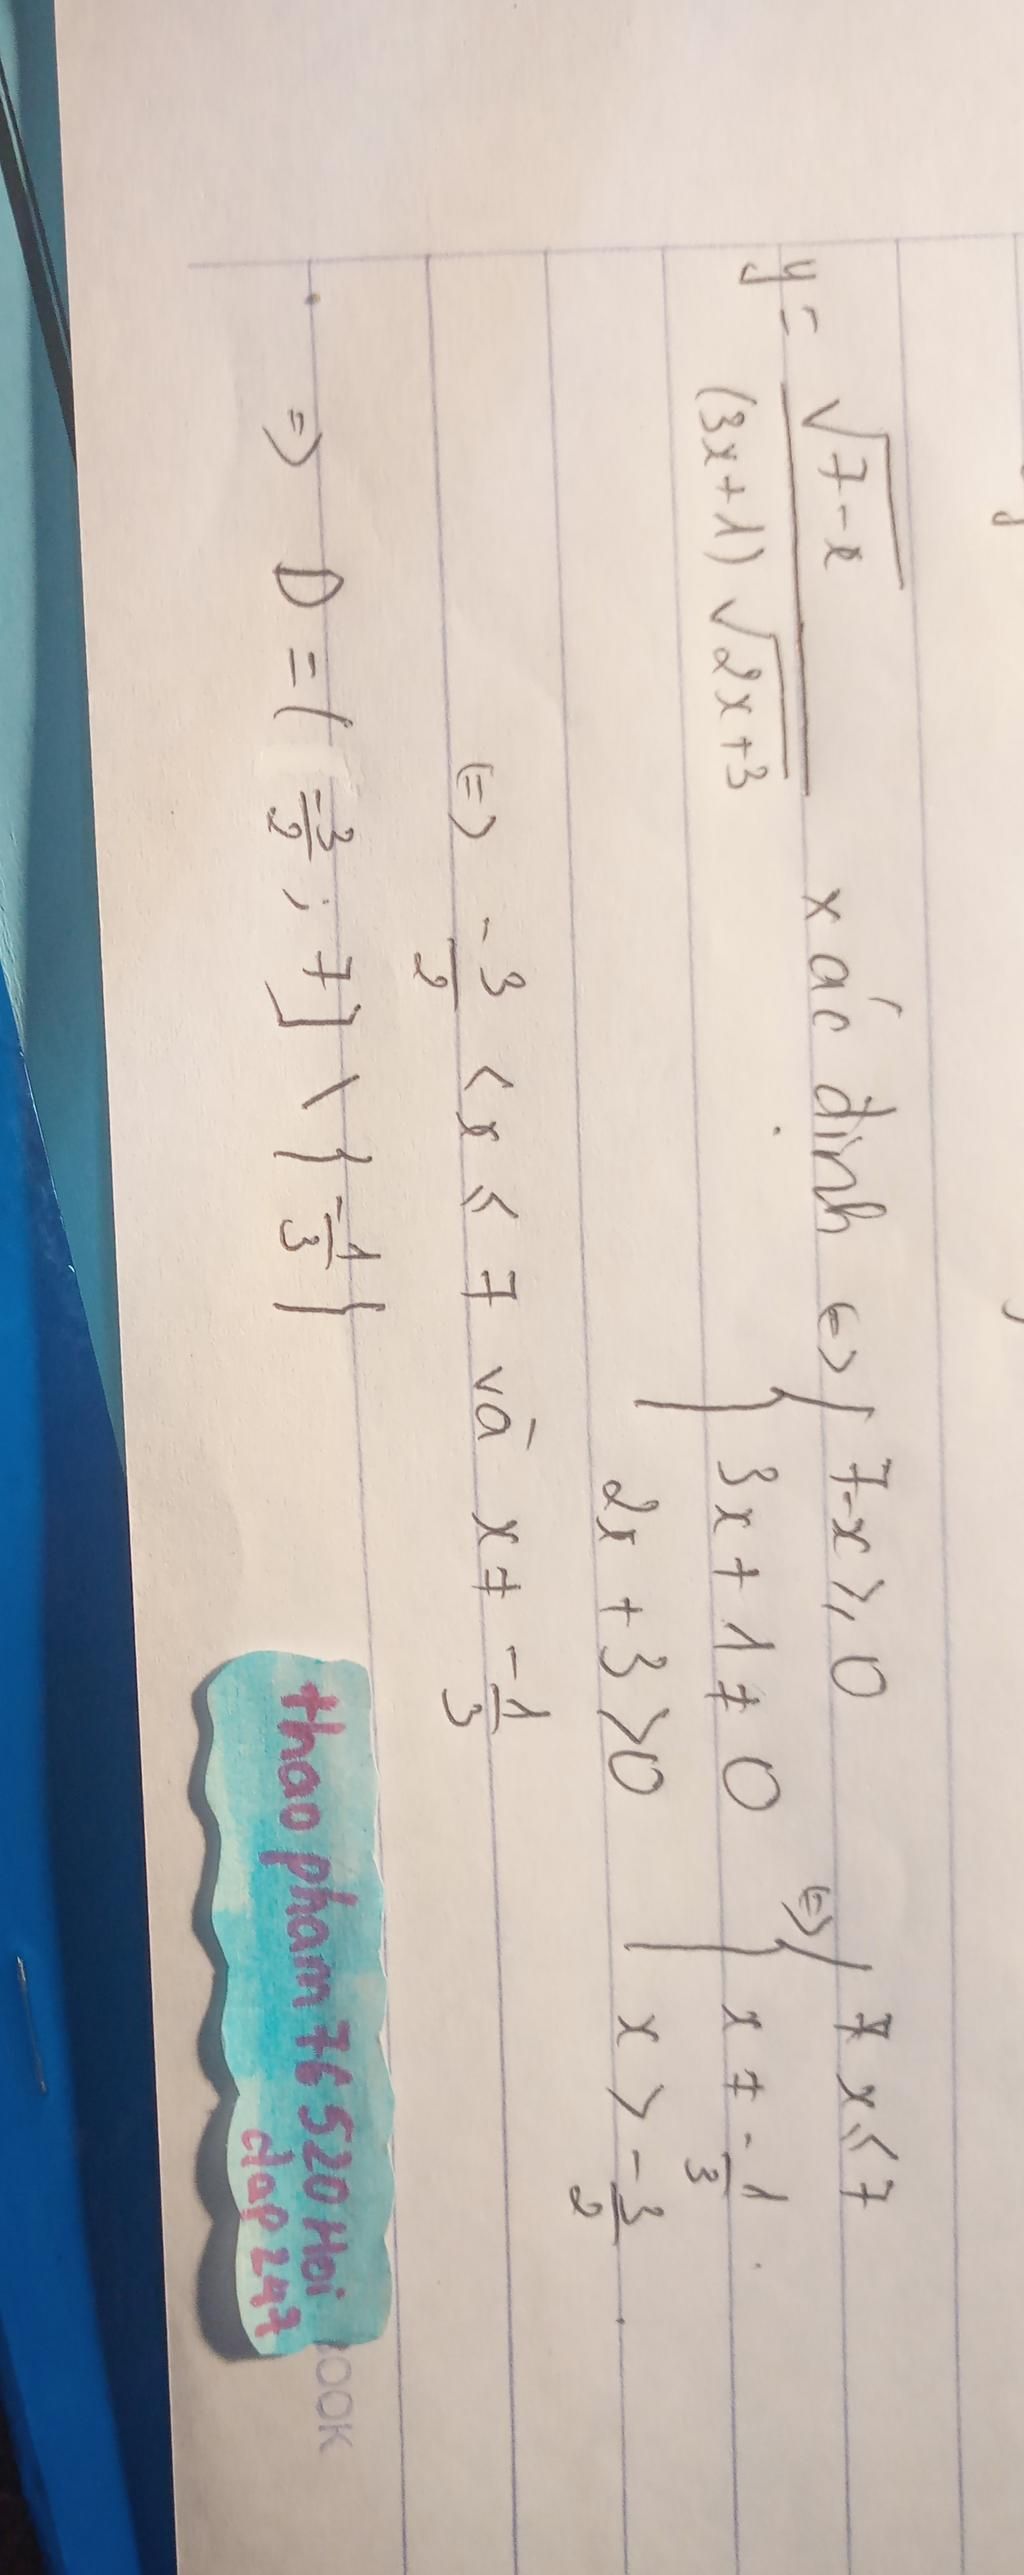 y = √(7-x) / (3x+1)√(2x+3) xác định <=> { 7-x ≥ 0 <=> { x ≤ 7
3x + 1 ≠ 0 x ≠ -1/3
2x + 3 > 0 x > -3/2
<=> -3/2 < x ≤ 7 và x ≠ -1/3
=> D = (-3/2 ; 7] \ {-1/3}
thao pham 76 520 Hoi
dap 247
OOK